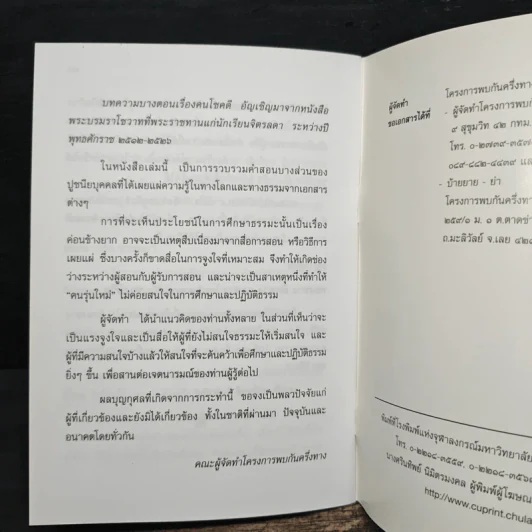 บทความบางตอนเรื่องคนโชคดี อัญเชิญมาจากหนังสือ
พระบรมราโชวาทที่พระราชทานแก่นักเรียนจิตรลดา ระหว่างปี
พุทธศักราช ๒๕๑๒-๒๕๒๖
ในหนังสือเล่มนี้ เป็นการรวบรวมคำสอนบางส่วนของ
ปูชนียบุคคลที่ได้เผยแผ่ความรู้ในทางโลกและทางธรรมจากเอกสาร
ต่างๆ
การที่จะเห็นประโยชน์ในการศึกษาธรรมะนั้นเป็นเรื่อง
ค่อนข้างยาก อาจจะเป็นเหตุสืบเนื่องมาจากสื่อการสอน หรือวิธีการ
เผยแผ่ ซึ่งบางครั้งก็ขาดสื่อในการจูงใจที่เหมาะสม จึงทำให้เกิดช่อง
ว่างระหว่างผู้สอนกับผู้รับการสอน และน่าจะเป็นสาเหตุหนึ่งที่ทำให้
"คนรุ่นใหม่" ไม่ค่อยสนใจในการศึกษาและปฏิบัติธรรม
ผู้จัดทำ ได้นำแนวคิดของท่านทั้งหลาย ในส่วนที่เห็นว่าจะ
เป็นแรงจูงใจและเป็นสื่อให้ผู้ที่ยังไม่สนใจธรรมะให้เริ่มสนใจ และ
ผู้ที่มีความสนใจบ้างแล้วให้สนใจที่จะค้นคว้าเพื่อศึกษาและปฏิบัติธรรม
ยิ่งๆ ขึ้น เพื่อสานต่อเจตนารมณ์ของท่านผู้รู้ต่อไป
ผลบุญกุศลที่เกิดจากการกระทำนี้ ขอจงเป็นพลวปัจจัยแก่
ผู้ที่เกี่ยวข้องและยังมิได้เกี่ยวข้อง ทั้งในชาติที่ผ่านมา ปัจจุบันและ
อนาคตโดยทั่วกัน
คณะผู้จัดทำโครงการพบกันครึ่งทาง
ผู้จัดทำ
ขอเอกสารได้ที่
โครงการพบกันครึ่งทาง
- ผู้จัดทำโครงการพบกัน
๙ สุขุมวิท ๔๒ กทม.
โทร. ๐-๒๗๓๙-๓๕๗
๐๘๙-๘๘๒-๔๔๓๙ แ
- ป้ายยาย - ย่า
โครงการพบกันครึ่งทา
๒๕๙/๑ ม. ๑ ต.ตาดข่า
ถ.มะลิวัลย์ จ.เลย ๔๒๑
พิมพ์ที่โรงพิมพ์แห่งจุฬาลงกรณ์มหาวิทยาลัย
โทร. ๐-๒๒๑๘-๓๕๕๙, ๐-๒๒๑๘-๓๕๖๑
นางศรินทิพย์ นิมิตรมงคล ผู้พิมพ์ผู้โฆษณ
http://www.cuprint.chula